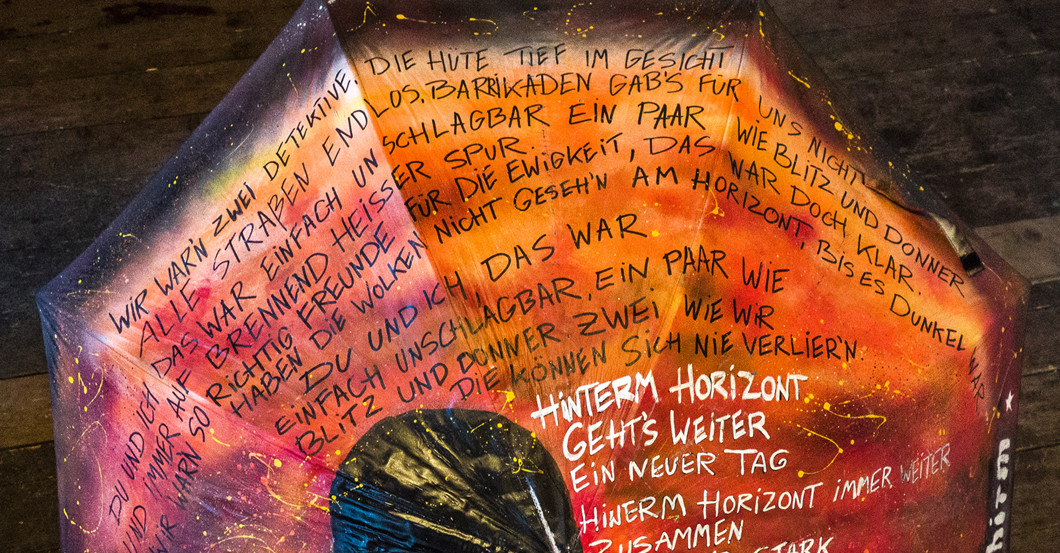 WIR WAR'N ZWEI DETEKTIVE, DIE HÜTE TIEF IM GESICHT
ALLE STRAßEN ENDLOS, BARRIKADEN GAB'S FÜR UNS NICHT
DU UND ICH DAS WAR EINFACH UNSCHLAGBAR EIN PAAR WIE BLITZ UND DONNER
UND IMMER AUF BRENNEND HEISSER SPUR.
WIR WARN SO RICHTIG FREUNDE FÜR DIE EWIGKEIT, DAS WAR DOCH KLAR.
HABEN DIE WOLKEN NICHT GESEH'N AM HORIZONT, BIS ES DUNKEL WAR
DU UND ICH DAS WAR
EINFACH UNSCHLAGBAR, EIN PAAR WIE
BLITZ UND DONNER ZWEI WIE WIR
DIE KÖNNEN SICH NIE VERLIER'N
HINTERM HORIZONT
GEHT'S WEITER
EIN NEUER TAG
HINERM HORIZONT IMMER WEITER
ZUSAMMEN
STARK